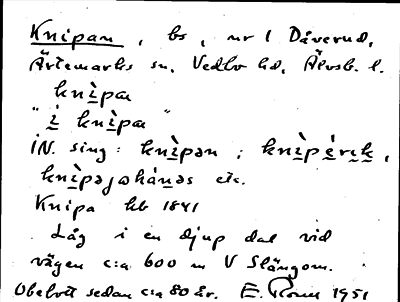 Knipan, bs, nr 1 Dåverud,
Ärtemarks sn, Vedbo hd, Älvsb. l.
knìpa
"i knìpa"
IN. sing: knìpən;
etc.
Knipa hb 1841
Låg i en djup dal vid
vägen c:a 600 m V Slängom.
Obebott sedan c:a 80 år. E. 1951